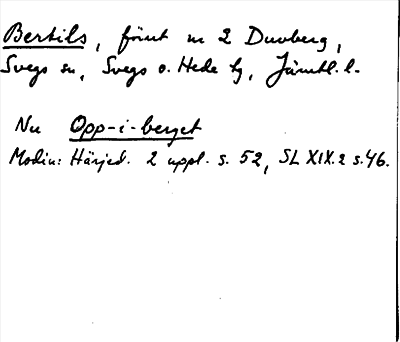 Bertils, förut nr 2 Duvberg,
Svegs sn, Svegs o. Hede tg, Jämtl. l.
Nu Opp-i-berget
Modin: Härjed. 2 uppl. s. 52, SL XIX.2 s. 46.